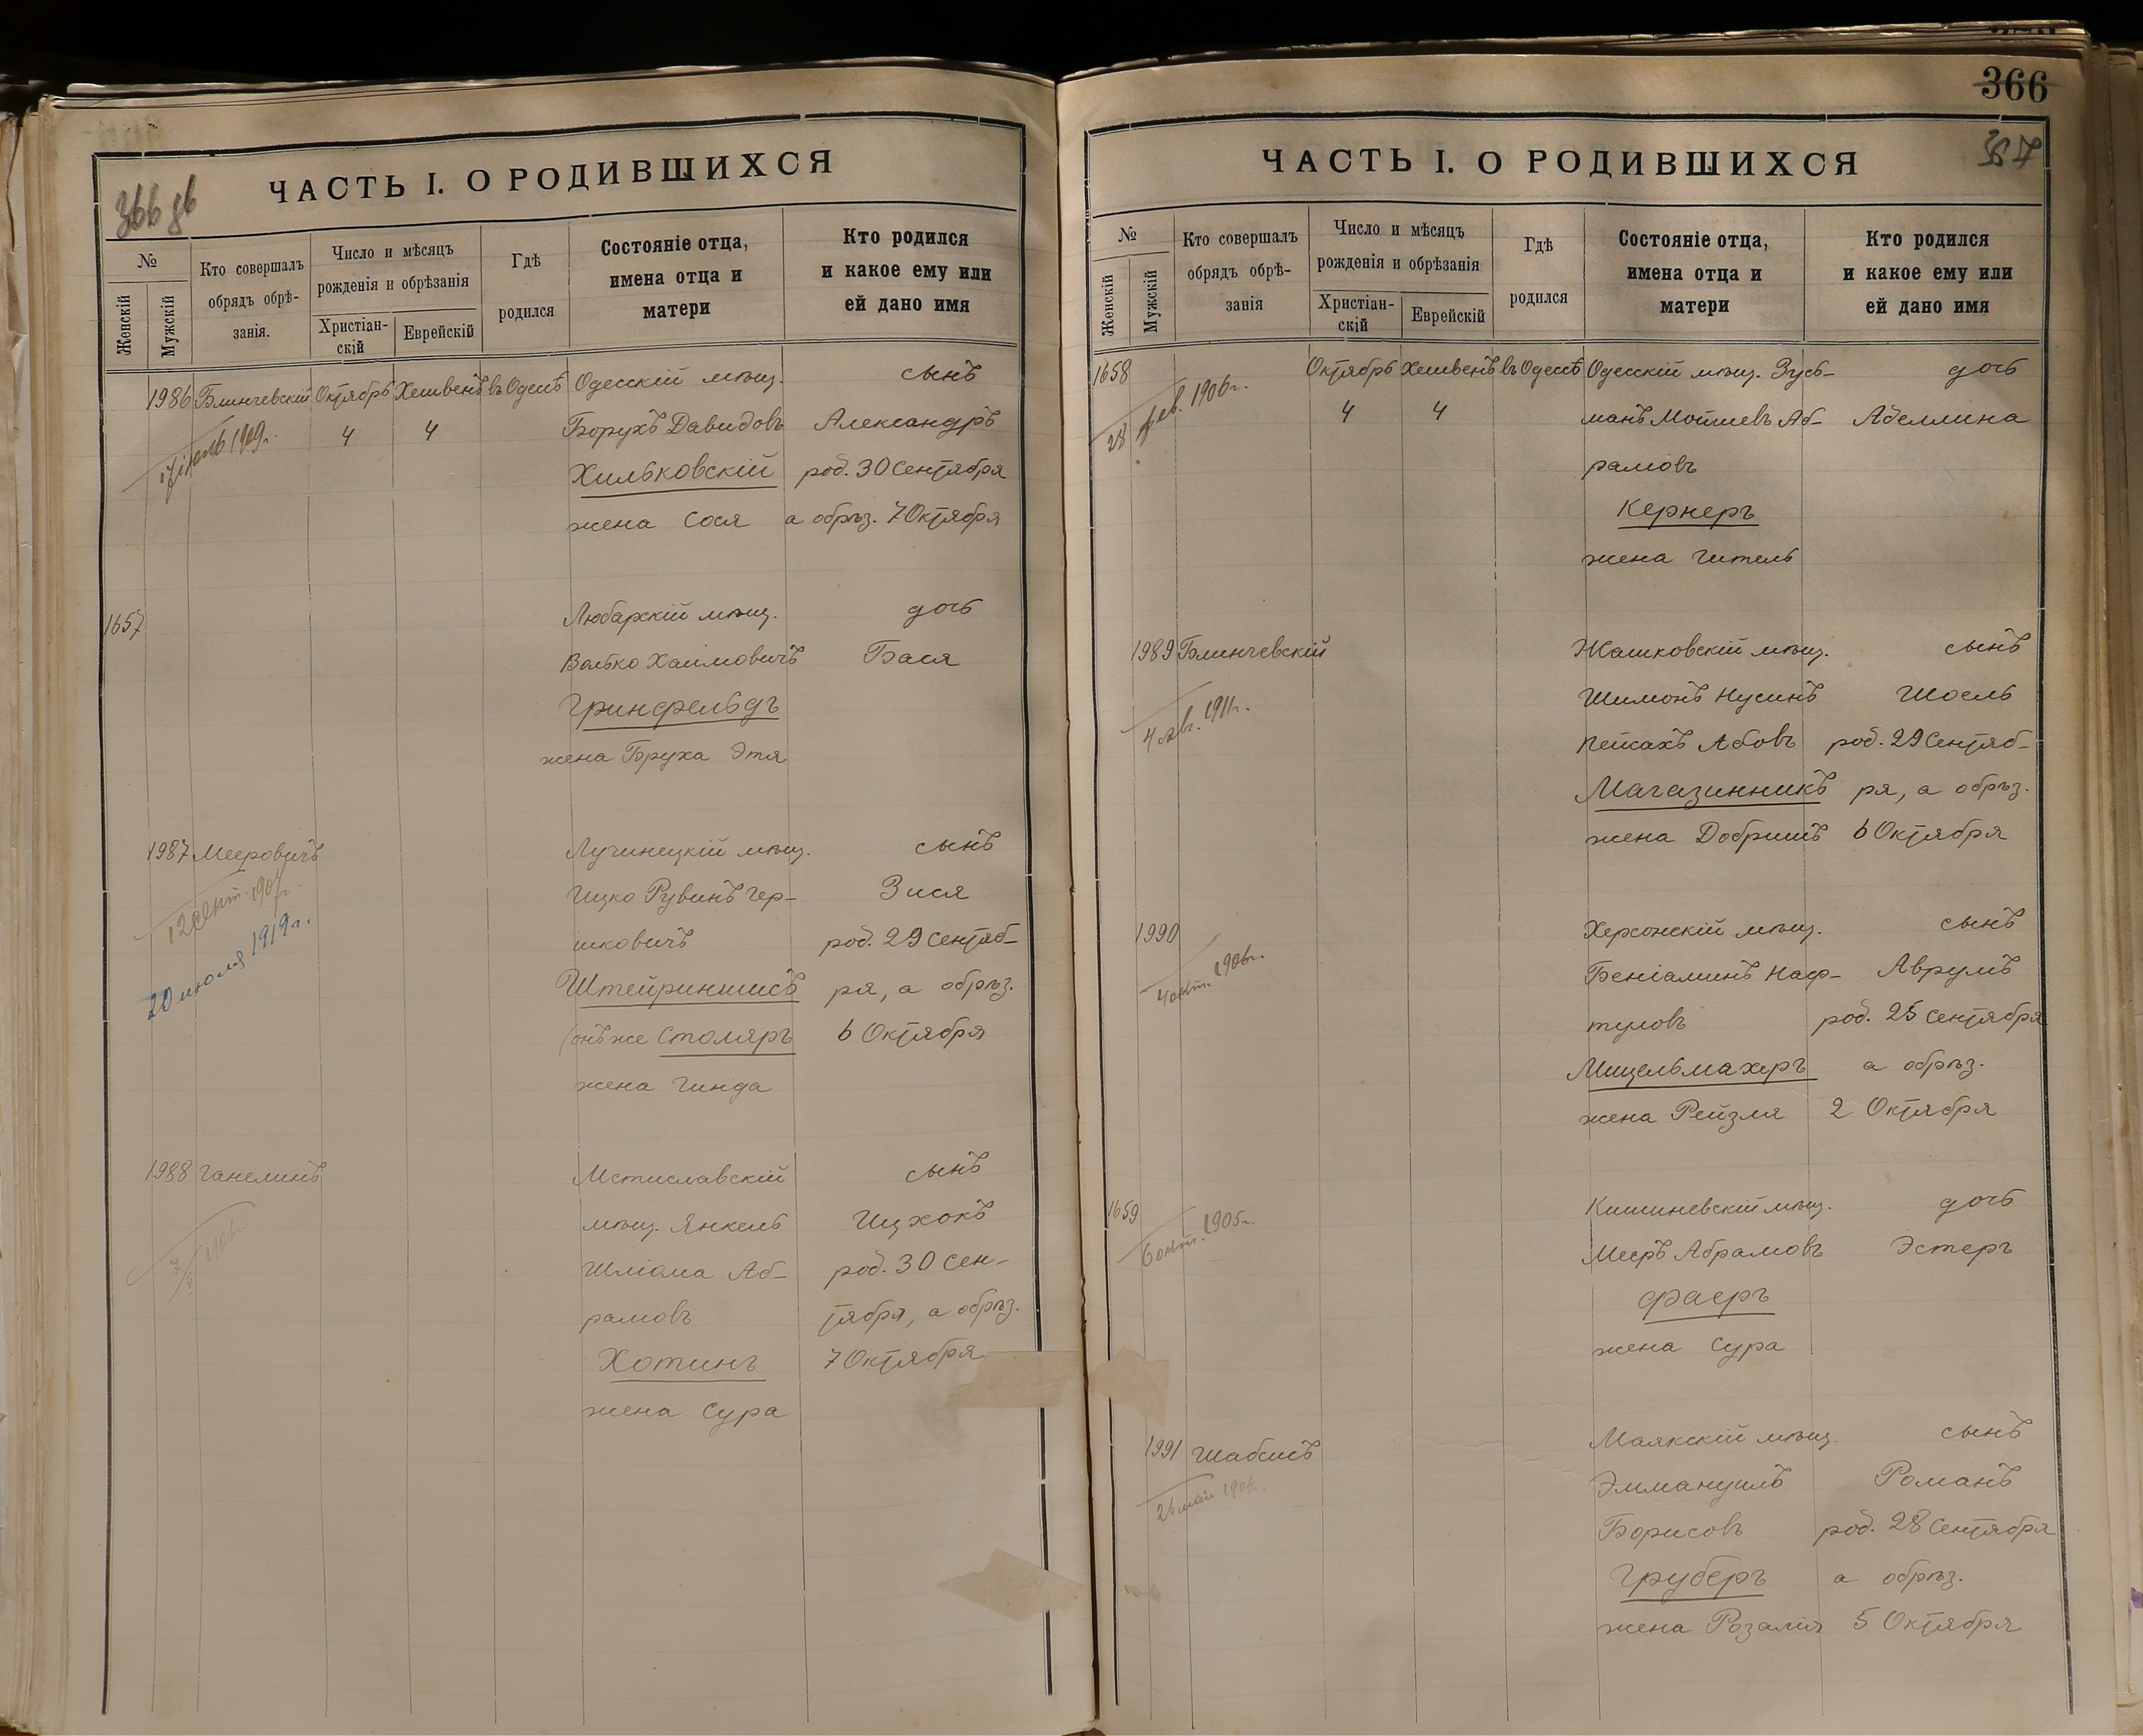 366 зб
ЧАСТЬ I. О РОДИВШИХСЯ
№
Женскій
Мужскій
Кто совершалъ
обрядъ обрѣ-
занія.
Число и мѣсяцъ
рожденія и обрѣзанія
Христіан-
скій
Еврейскій
Гдѣ
родился
Состояніе отца,
имена отца и
матери
Кто родился
и какое ему или
ей дано имя
1986 Блинчевскій Октябрь Хешвень въ Одессѣ Одесскій мѣщ. сынъ
4 4 Борухъ Давидовъ Александръ
1909г.
Хильковскій род. 30 Сентября
жена Сося а обрѣз. 7 Октября
1657 Любарскій мѣщ. дочь
Волько Хаимовичъ Бася
Гринфельдъ
жена Бруха Этя
1987 Мееровичъ Лучинецкій мѣщ. сынъ
12 сент.
Ицко Рувинъ Гер- Зися
20 июля 1919г.
шковичъ род. 29 Сентяб-
Штейриншисъ ря, а обрѣз.
(онъ же Столяръ 6 Октября
жена Гинда
1988 Ганелинъ Мстиславскій сынъ
мѣщ. Янкель Ицхокъ
1906г.
Шліома Аб- род. 30 Сен-
рамовъ тября, а обрѣз.
Хотинъ 7 Октября
жена Сура
366
ЧАСТЬ I. О РОДИВШИХСЯ
№
Женскій
Мужскій
Кто совершалъ
обрядъ обрѣ-
занія
Число и мѣсяцъ
рожденія и обрѣзанія
Христіан-
скій
Еврейскій
Гдѣ
родился
Состояніе отца,
имена отца и
матери
Кто родился
и какое ему или
ей дано имя
1658 Октябрь Хешвень въ Одессѣ Одесскій мѣщ. Зусь- дочь
28 фев. 1906г.
4 4 манъ Мошиевъ Аб- Аделлина
рамовъ
Кернеръ
жена Гитель
1989 Блинчевскій Жашковскій мѣщ. сынъ
Шимонъ Нусинъ Шоель
4 1911г.
Пейсахъ Абовъ род. 29 Сентяб-
Магазинникъ ря, а обрѣз.
жена Добришъ 6 Октября
1990 Херсонскій мѣщ. сынъ
4 окт. 1906г.
Беніаминъ Наф- Аврумъ
туловъ род. 25 Сентября
Мицельмахеръ а обрѣз.
жена Рейзля 2 Октября
1659 Кишиневскій мѣщ. дочь
6 окт. 1905г.
Мееръ Абрамовъ Эстеръ
Фаеръ
жена Сура
1991 Шабсисъ Маякскій мѣщ. сынъ
26 мая
Эммануилъ Романъ
Борисовъ род. 28 Сентября
Груберъ а обрѣз.
жена Розалія 5 Октября